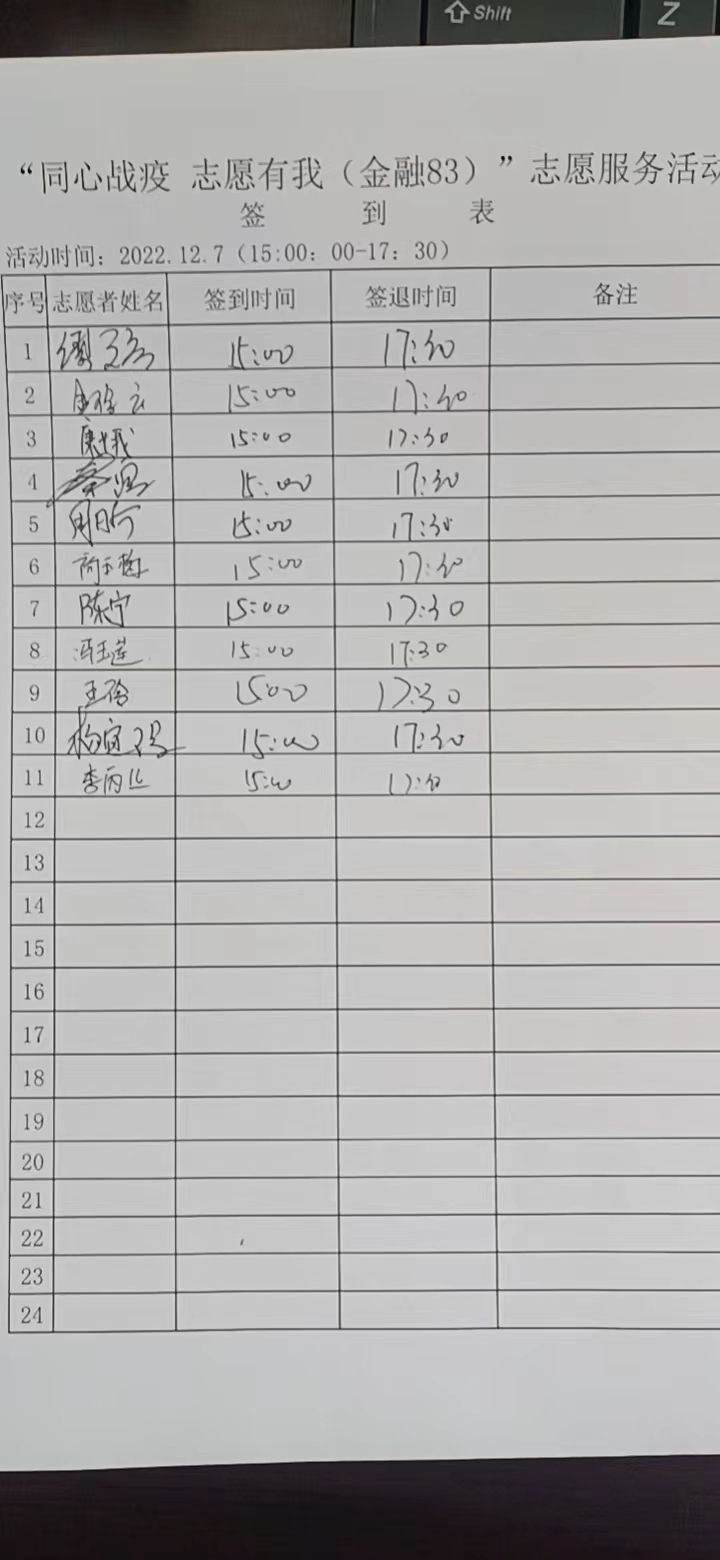 Shift
Z
“同心战疫 志愿有我（金融83）”志愿服务活动
签 到 表
活动时间：2022.12.7（15:00：00-17：30）
序号 志愿者姓名 签到时间 签退时间 备注
1 15:00 17:30
2 15:00 17:30
3 15:00 17:30
4 15:00 17:30
5 15:00 17:30
6 15:00 17:30
7 陈宁 15:00 17:30
8 冯玉莲 15:00 17:30
9 15:00 17:30
10 15:00 17:30
11 15:00 17:30
12
13
14
15
16
17
18
19
20
21
22
23
24